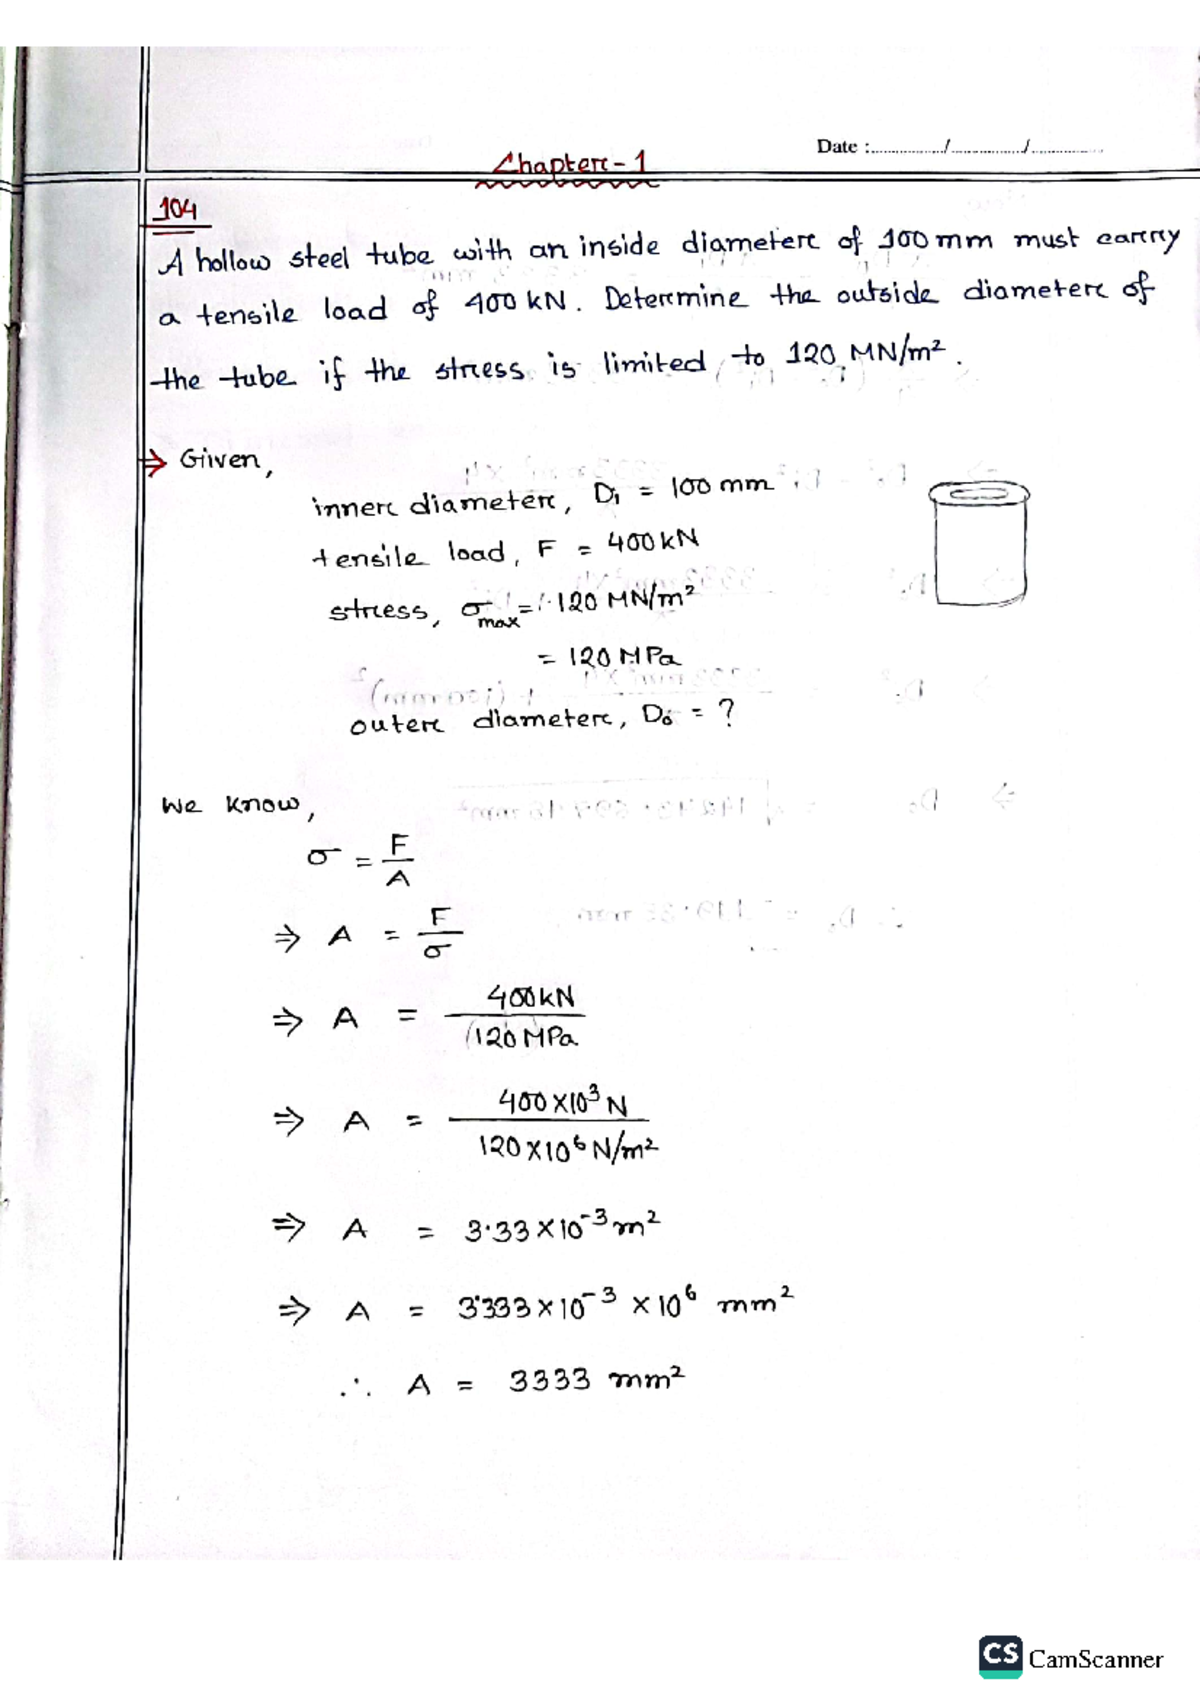 Date :............../............../..............
Chapter - 1
104
A hollow steel tube with an inside diameter of 100 mm must carry
a tensile load of 400 kN. Determine the outside diameter of
the tube if the stress is limited to 120 MN/m².
⇒ Given,
inner diameter, Di = 100 mm
tensile load, F = 400 kN
stress, σmax = 120 MN/m²
= 120 MPa
outer diameter, Do = ?
We know,
σ = F/A
⇒ A = F/σ
⇒ A = 400 kN / 120 MPa
⇒ A = 400 × 10³ N / 120 × 10⁶ N/m²
⇒ A = 3.33 × 10⁻³ m²
⇒ A = 3.333 × 10⁻³ × 10⁶ mm²
∴ A = 3333 mm²
CS CamScanner